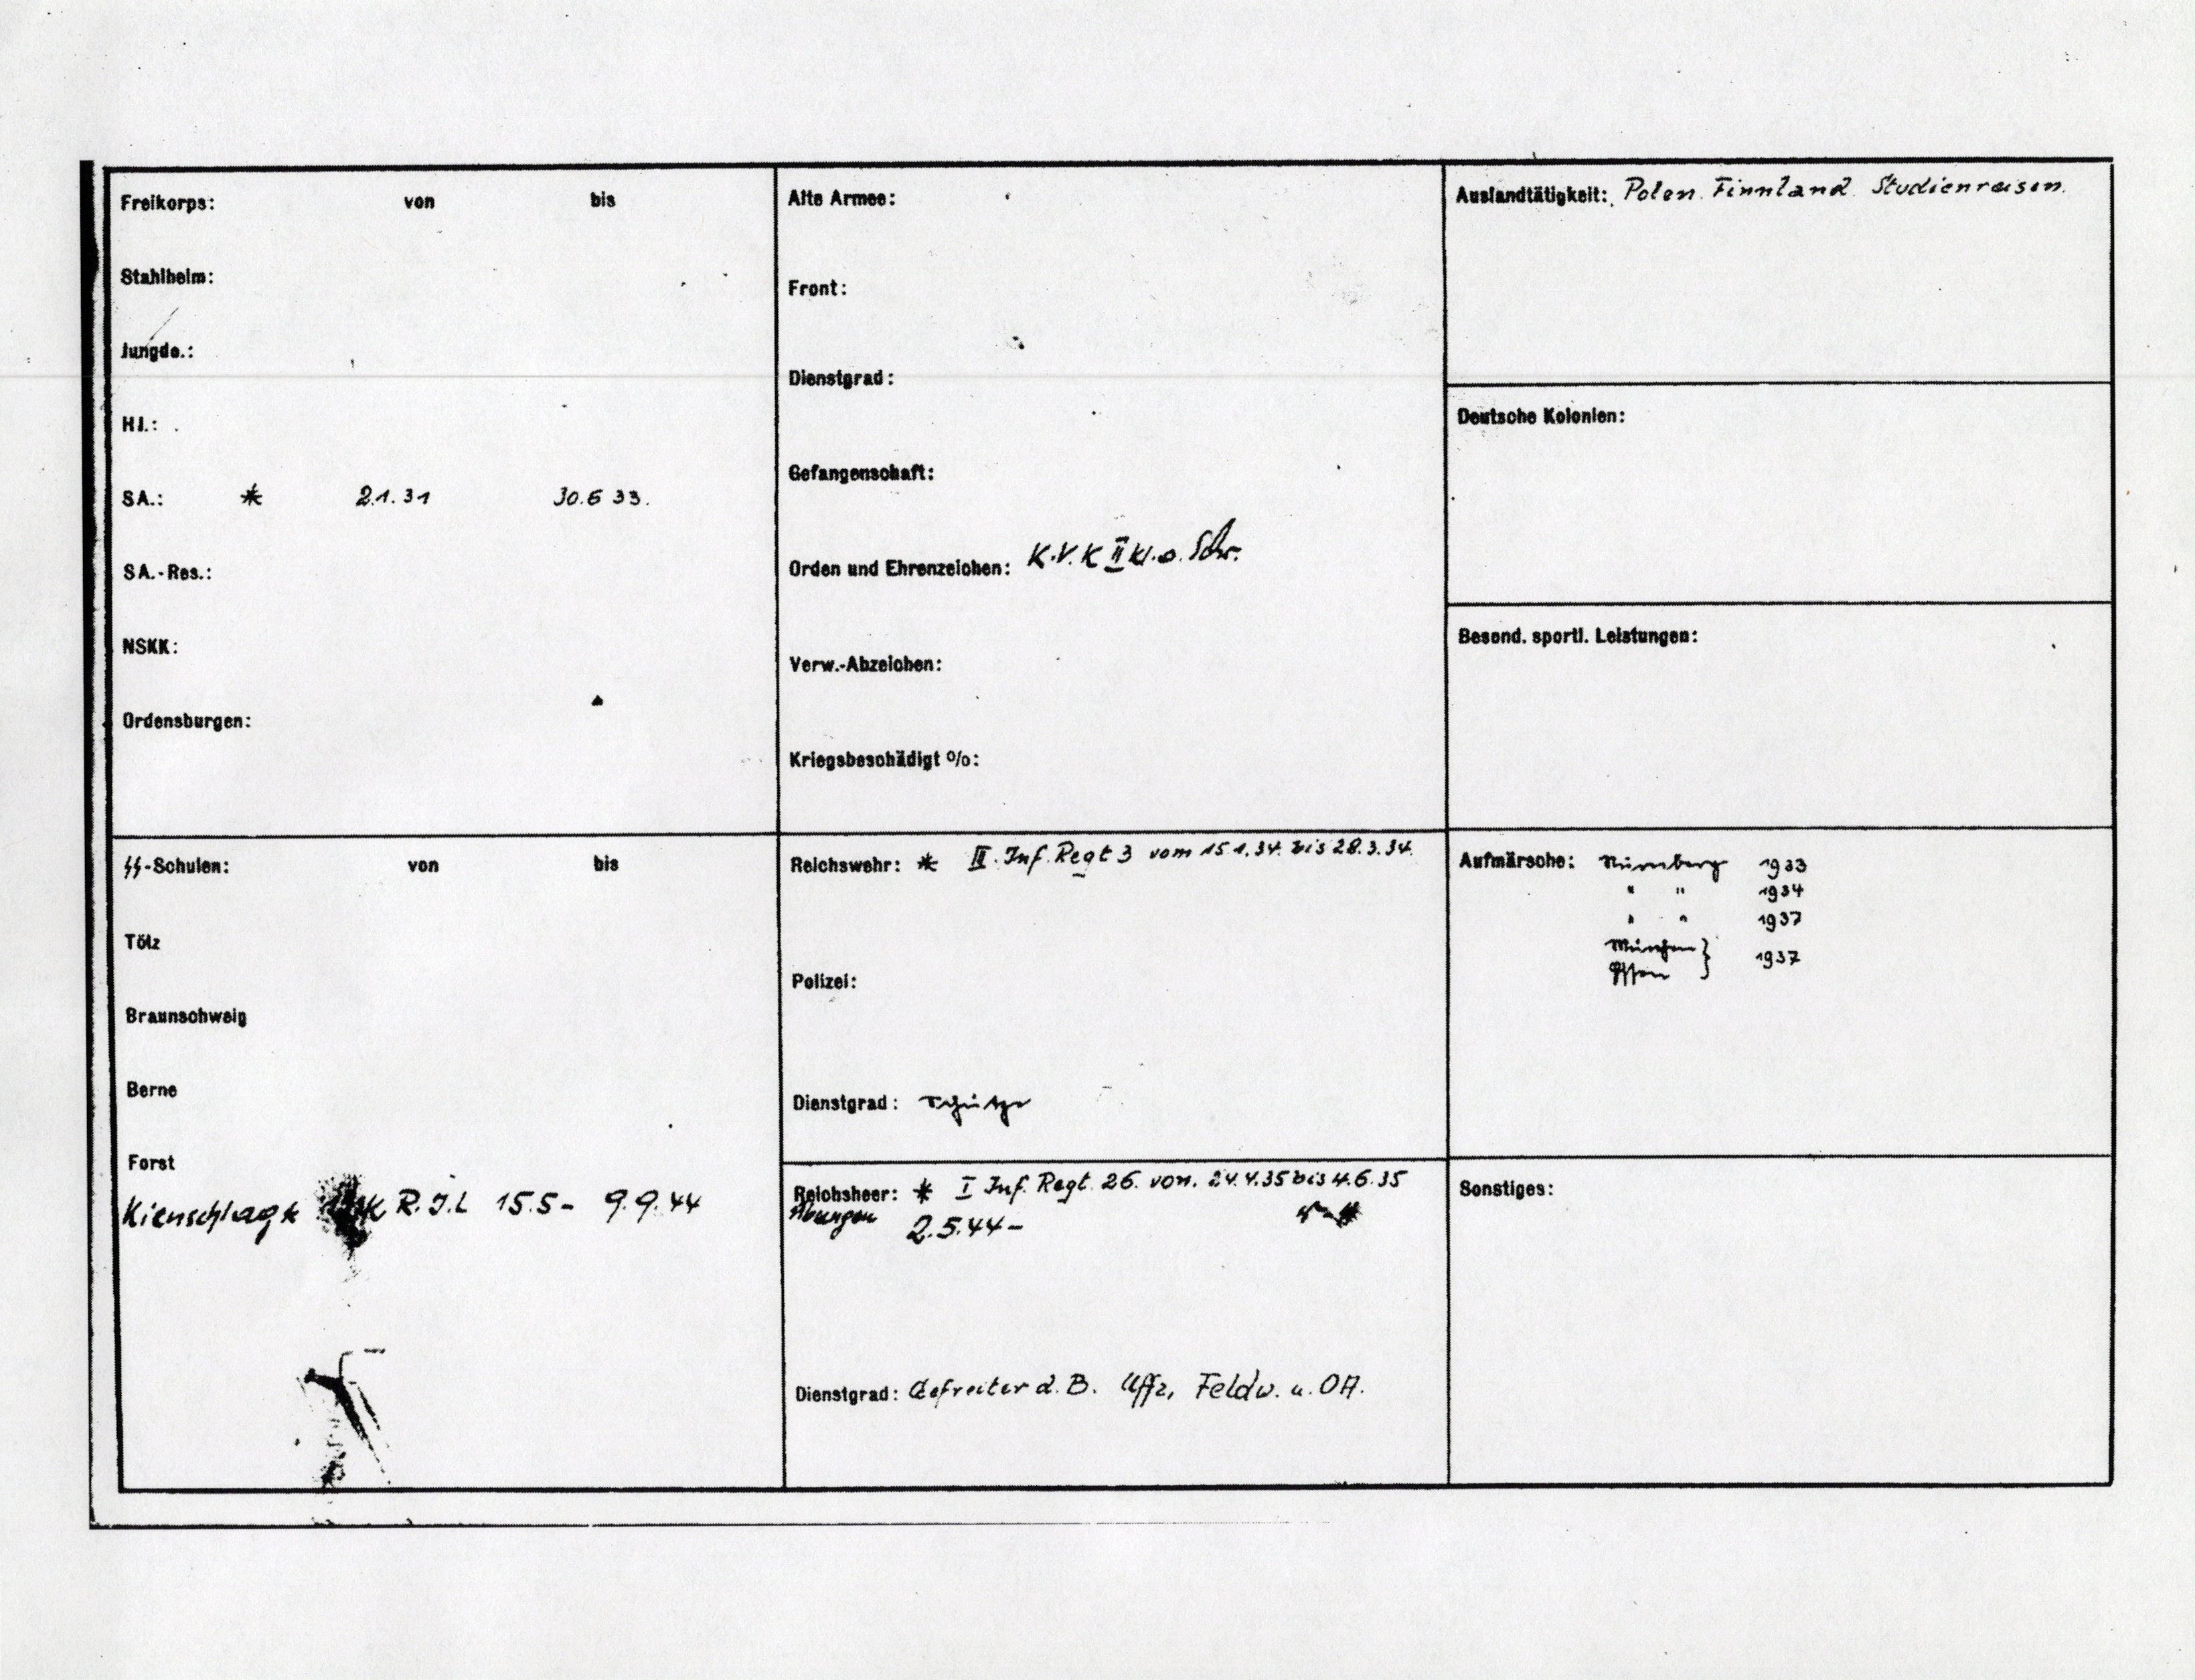 Freikorps: von bis
Stahlhelm:
Jungdo.:
HJ.:
SA.: * 2.1.31 30.6 33.
SA.-Res.:
NSKK:
Ordensburgen:
Alte Armee:
Front:
Dienstgrad:
Gefangenschaft:
Orden und Ehrenzeichen: K.V.K II Kl. o. Schw.
Verw.-Abzeichen:
Kriegsbeschädigt %:
Auslandtätigkeit: Polen. Finnland. Studienreisen.
Deutsche Kolonien:
Besond. sportl. Leistungen:
ᛋᛋ-Schulen: von bis
Tölz
Braunschweig
Berne
Forst
Kienschlag R.I.L 15.5- 9.9.44
Reichswehr: * Inf. Regt 3 vom 15.1.34. bis 28.3.34.
Polizei:
Dienstgrad: Schütze
Reichsheer: * I Inf. Regt. 26. von. 24.4.35 bis 4.6.35
Übungen 2.5.44-
Dienstgrad: Gefreiter d. B. Uffz, Feldw. u. OA.
Aufmärsche: Nürnberg 1933
" " 1934
" " 1937
München } 1937
Essen
Sonstiges: